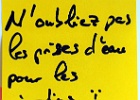 N'oubliez pas
les prises d'eau
pour les